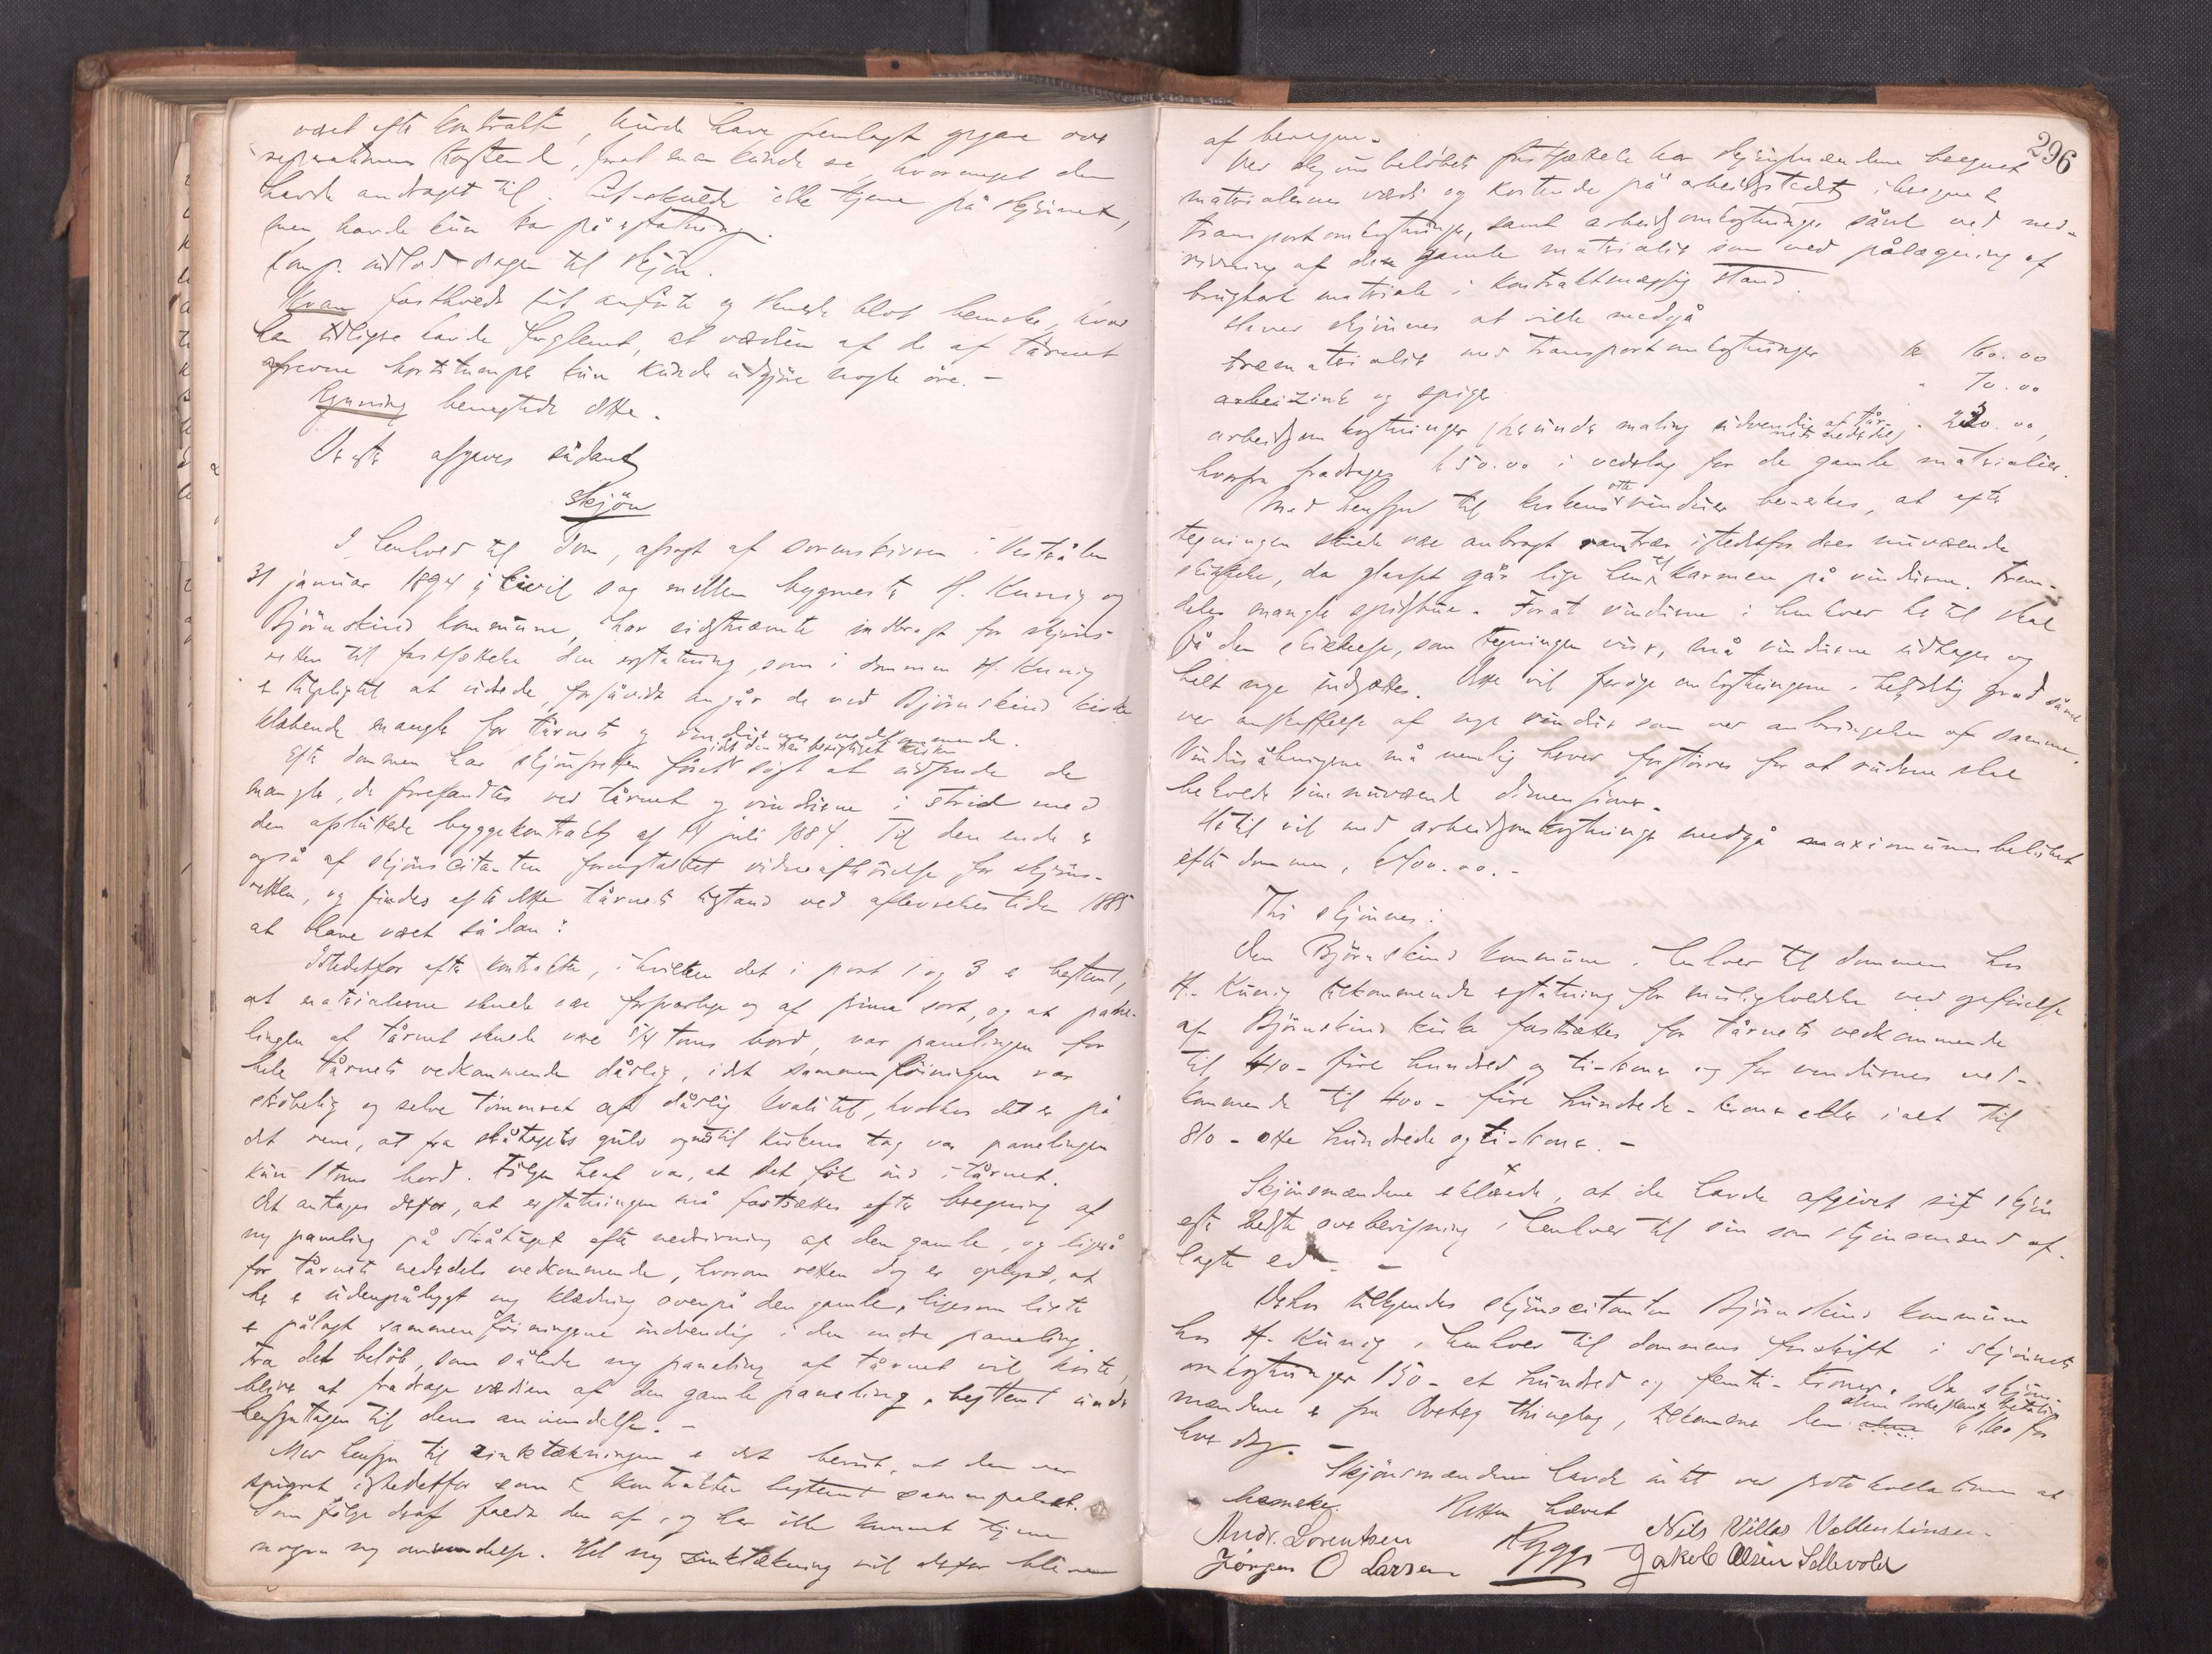 været efter kontrakten, burde have fremlagt opgave over
reparationens kostende, forat man kunde se, hvormeget den
havde andraget til. Citskulde ikke tjene på skjønnet,
men havde kun krav på erstatning.
Komp. indlod sagen til skjøn.
Kvam fastholdt sit anførte og skulde blot bemærke, hvad
han tidligere havde forglemt, at værdien af de af tårnet
afrevne bordstumper kun kunde udgjøre nogle øre. –
Rynning benegtede dette.
Derefter afgaves sådant
Skjøn
I henhold til dom, afsagt af sorenskriveren i Vesterålen
31 januar 1894 i civil sag mellem bygmester H. Kunig og
Bjørnskind kommune, har sidstnævnte indbragt for skjøns-
retten til fastsættelse den erstatning, som i dommen H. Kunig
er tilpligtet at udrede, forsåvidt angår de ved Bjørnskind kirke
klæbende mangler for tårnets og vinduernes vedkommende.
Efter dommen har skjønsretten først, idet den har besigtiget kirken, søgt at udfinde de
mangler, der forefandtes ved tårnet og vinduerne i strid med
den afsluttede byggekontrakt af 14 juli 1884. Til den ende er
også af skjønscitanten foranstaltet vidneafhørelse for skjøns-
retten, og findes efter dette tårnets tilstand ved afleverelsestiden 1885
at have været sådan:
Istedetfor efter kontrakten, i hvilken det i post 1 og 3 er bestemt,
at materialerne skulde være forsvarlige og af prima sort, og at pane-
lingen af tårnet skulde være 5/4 toms bord, var panelingen for
hele tårnets vedkommende dårlig, idet sammenføiningen var
skrøbelig og selve tømmeret af dårlig kvalitet, hvorhos det er på
det rene, at fra stråtagets gulv og ned til kirkens tag var panelingen
kun 1 toms bord. Følgen heraf var, at det føk ind i tårnet.
Det antages derfor, at erstatningen må fastsættes efter beregning af
ny paneling på stråtaget efter nedrivning af den gamle, og ligeså
for tårnets nedre dels vedkommende, hvorom retten dog er oplyst, at
her er udenpåbygget ny klædning ovenpå den gamle, ligesom lister
er pålagt sammenføiningene indvendig i den indre paneling.
Fra det beløb, som således ny paneling af tårnet vil koste,
bliver at fradrage værdien af den gamle paneling, bestemt under
hensyntagen til dens anvendelse. –
Med hensyn til zinktækningen er det bevist, at den var
spigret istedetfor som i kontrakten bestemt sammenfalset.
Som følge deraf faldt den af, og har ikke kunnet tjene
nogen ny anvendelse. Hel ny zinktækning vil derfor blive
296
af beregne.
Ved skjønsbeløbets fastsættelse har skjønsmændene beregnet
materialernes værdi og kostende på arbeidsstedet, iberegnet
transportomkostninger, samt arbeidsomkostninger såvel ved ned-
rivning af den gamle materialer som ved pålægning af
brugbart materiale i kontraktmæssig stand.
Herved skjønnes at ville medgå
træmaterialer med transportomkostninger kr 160.00
arbei zink og spiger " 70.00
arbeidsomkostninger, herunder maling udvendig af tårnets nedre del, " 230.00,
hvorfra fradrages kr 50.00 i vederlag for de gamle materialier.
Med hensyn til kirkens otte vinduer bemærkes, at efter
tegningen skulde være anbragt ramtrær istedetfor deres nuværende
skikkelse, da glasset går lige hen til karmen på vinduerne. Frem-
deles mangle spidsbue. Forat vinduerne i henhold hertil skal
få den skikkelse, som tegningen viser, må vinduerne udtages og
helt nye indsættes. Dette vil forøge omkostningerne i betydelig grad såvel
ved anskaffelse af nye vinduer som ved anbringelsen af samme.
Vindusåbningerne må nemlig herved forstørres for at ruderne skal
beholde sine nuværende dimensioner.
Hertil vil med arbeidsomkostninger medgå maximumsbeløbet
efter dommen, kr 400.00. –
Thi skjønnes:
Den Bjørnskind kommune i henhold til dommen hos
H. Kunig tilkommende erstatning for misligholdelse ved opførelse
af Bjørnskind kirke fastsættes for tårnets vedkommende
til 410 - fire hundred og ti - kroner og for vinduernes ved-
kommende til 400 - fire hundrede - kroner eller ialt til
810 - otte hundrede og ti - kroner. –
Skjønsmændene erklærede, at de havde afgivet sit skjøn
efter bedste overbevisning i henhold til sin som skjønsmænd af-
lagte ed. –
Derhos tilkjendes skjønscitanten Bjørnskind kommune
hos H. Kunig i henhold til dommens forskrift i skjønnets
omkostninger 150 - et hundred og femti - kroner. Da skjøns-
mændene er fra Dverberg thinglag, tilkommer dem kr 1.60 for
hver dag. –
Skjønsmændene havde intet ved protokollationen at
bemærke. Retten hævet
Andr. Lorentsen Rygge Nils Villas Valtentinsen
Jørgen O Larsen Jakob Olsen Sellevold